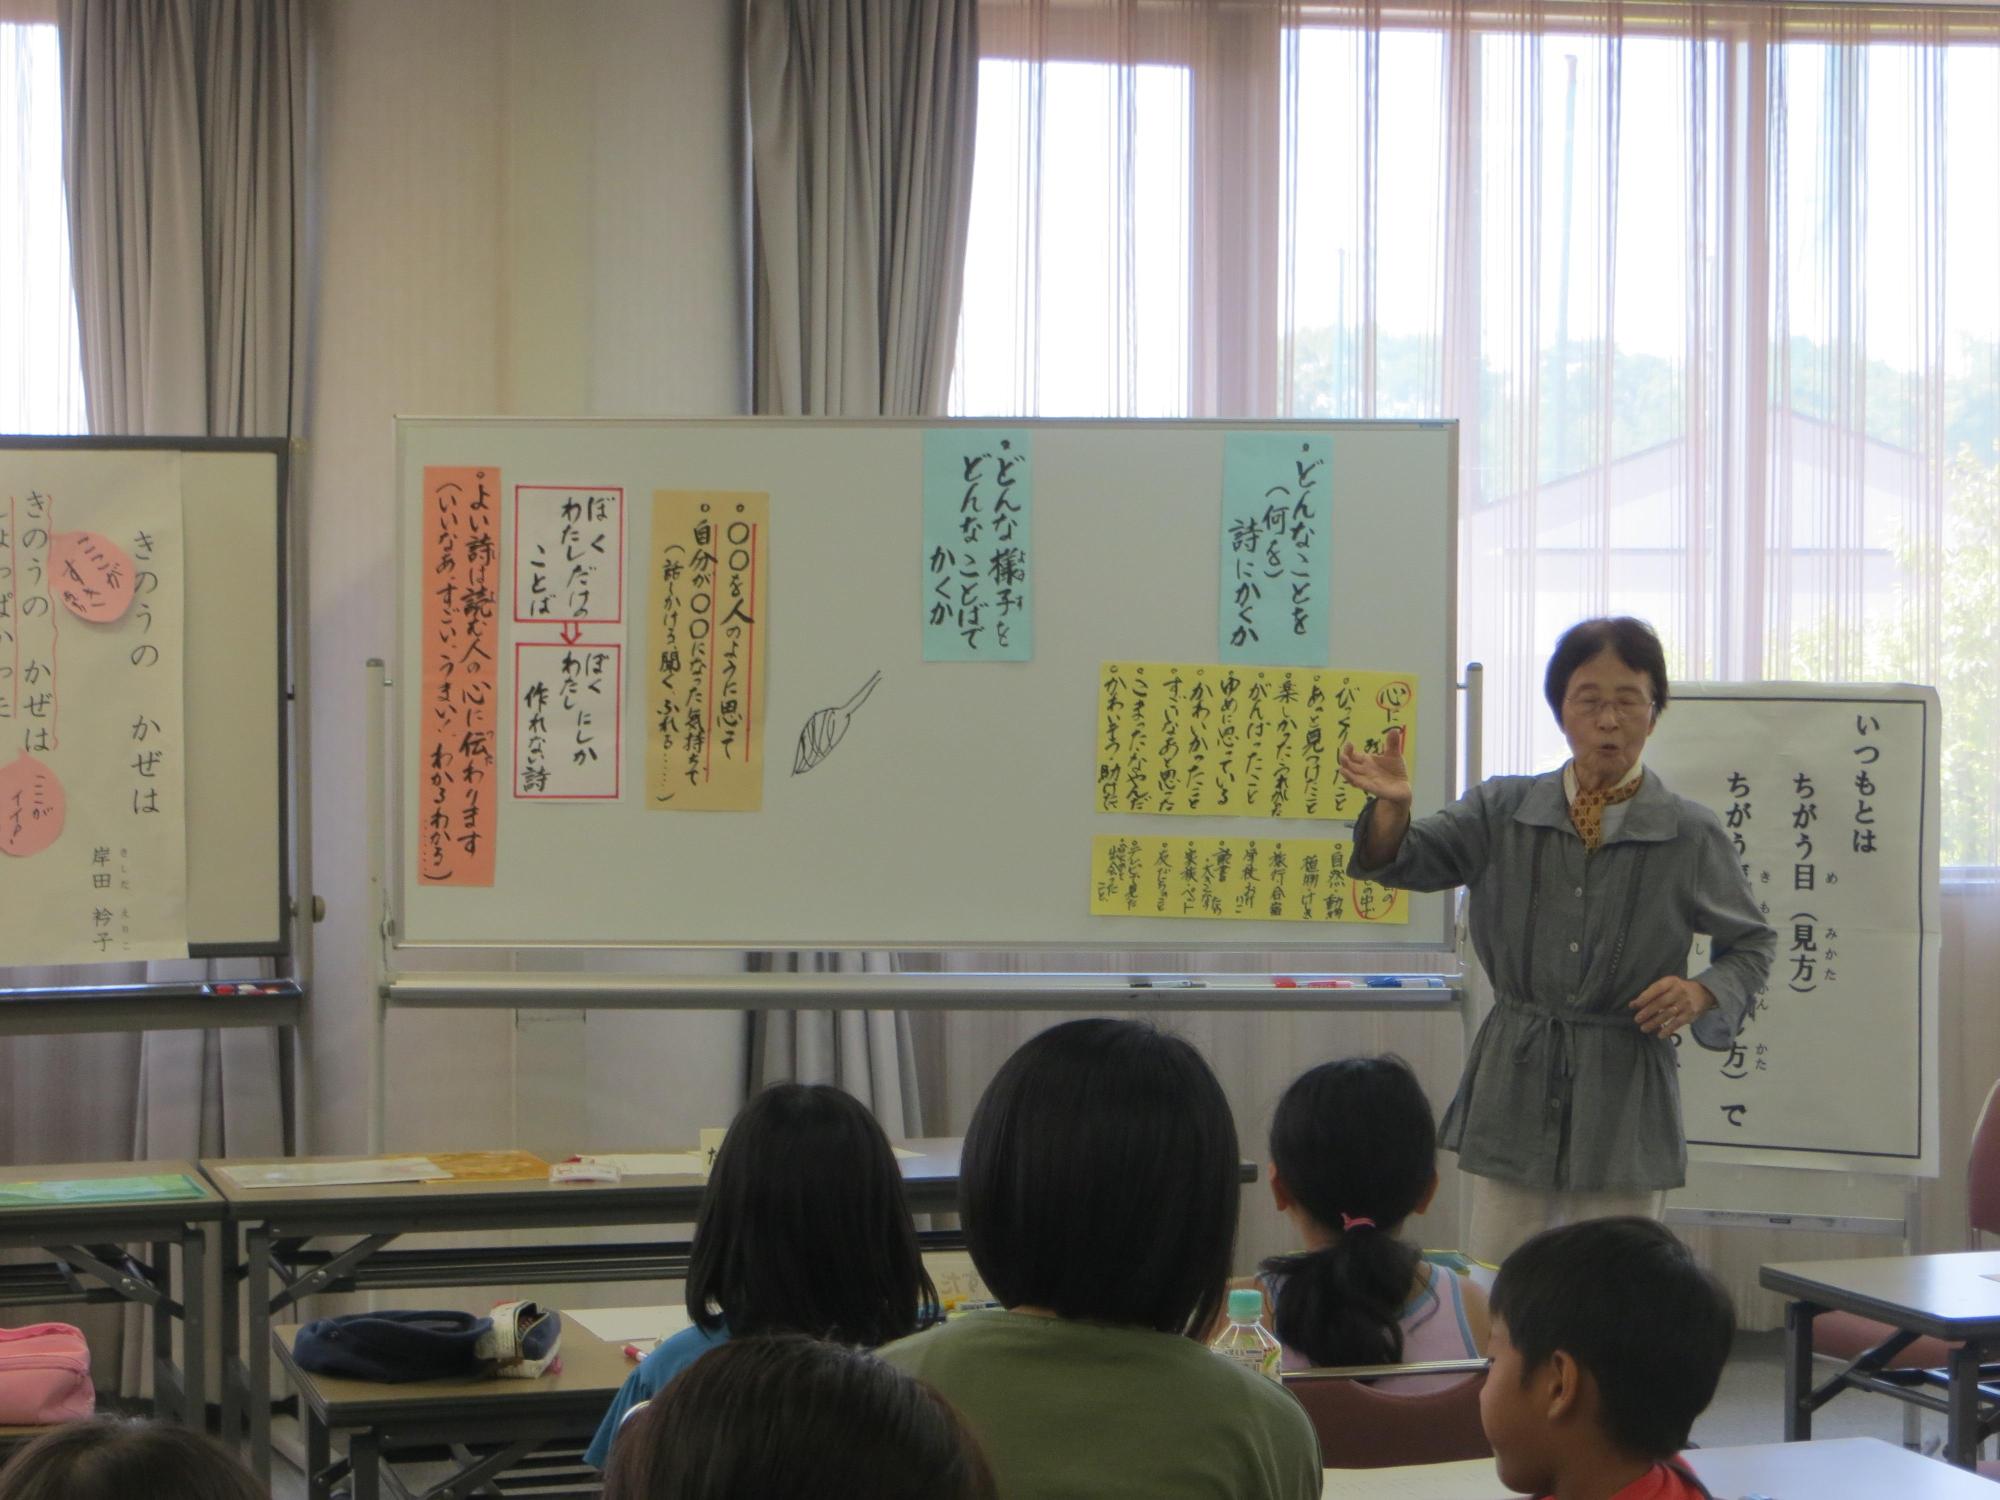 いつもとは
ちがう目（見方）
め
みかた
ちがう
き
も
かた
方）で
・どんなことを
（何を）
詩にかくか
・どんな様子を
どんなことばで
かくか
よう す
心に
びっくりしたこと
・あっと見つけたこと
・がんばったこと
・ゆめに思っている
・かわいかったこと
・すごいなあと思った
・こまったなやんだ
・自然・動物
・旅行・合宿
・家族・ペット
・〇〇を人のように思って
・自分が〇〇になった気持ちで
（話しかける、聞く、ふれる……）
ぼく
わたしだけの
ことば
ぼく
わたし にしか
作れない詩
・よい詩は読む人の心に伝わります
（いいなあ、すごい、うまい！わかるわかる……）
きのうの かぜは
岸田 衿子
きしだ えりこ
ここが
すき
きのうの かぜは
ここが
しょっぱかった